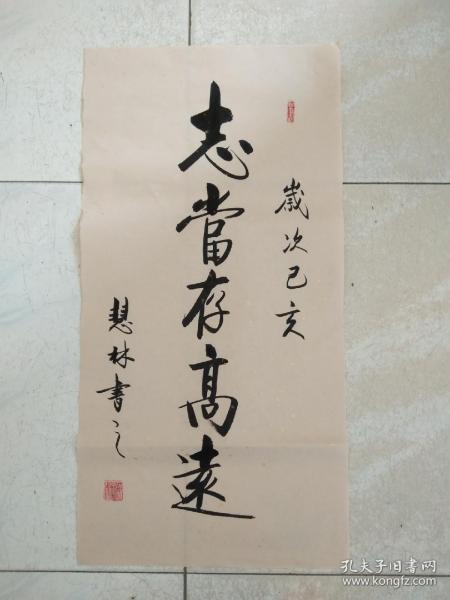 歲次己亥
志當存高遠
慧林書之
孔夫子旧书网
www.kongfz.com